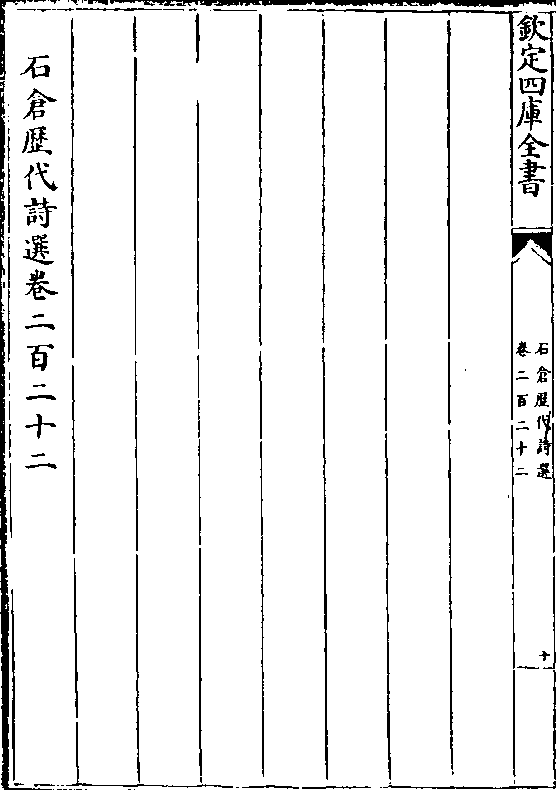 欽定四庫全書
石倉歷代詩選
卷二百二十二
十
石倉歷代詩選卷二百二十二